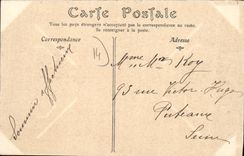 Carte Postale
Tous les pays étrangers n'acceptent pas la correspondance au recto.
Se renseigner à la poste
Correspondance
Adresse
14
Souvenir affectueux
Mme Roy
95 rue Victor Hugo
Puteaux
Seine